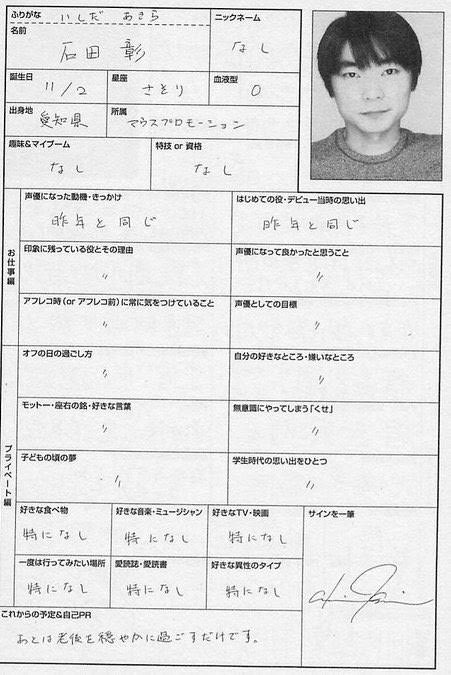 ふりがな いしだ あきら
ニックネーム
名前
石田 彰
なし
誕生日 星座 血液型
11/2 さそり O
出身地 所属
愛知県 マウスプロモーション
趣味&マイブーム 特技 or 資格
なし なし
お仕事編
声優になった動機・きっかけ はじめての役・デビュー当時の思い出
昨年と同じ 昨年と同じ
印象に残っている役とその理由 声優になって良かったと思うこと
〃 〃
アフレコ時(or アフレコ前)に常に気をつけていること 声優としての目標
〃 〃
プライベート編
オフの日の過ごし方 自分の好きなところ・嫌いなところ
〃 〃
モットー・座右の銘・好きな言葉 無意識にやってしまう「くせ」
〃 〃
子どもの頃の夢 学生時代の思い出をひとつ
〃 〃
好きな食べ物 好きな音楽・ミュージシャン 好きなTV・映画 サインを一筆
特になし 特になし 特になし
一度は行ってみたい場所 愛読誌・愛読書 好きな異性のタイプ
特になし 特になし 特になし
これからの予定&自己PR
あとは老後を穏やかに過ごすだけです。